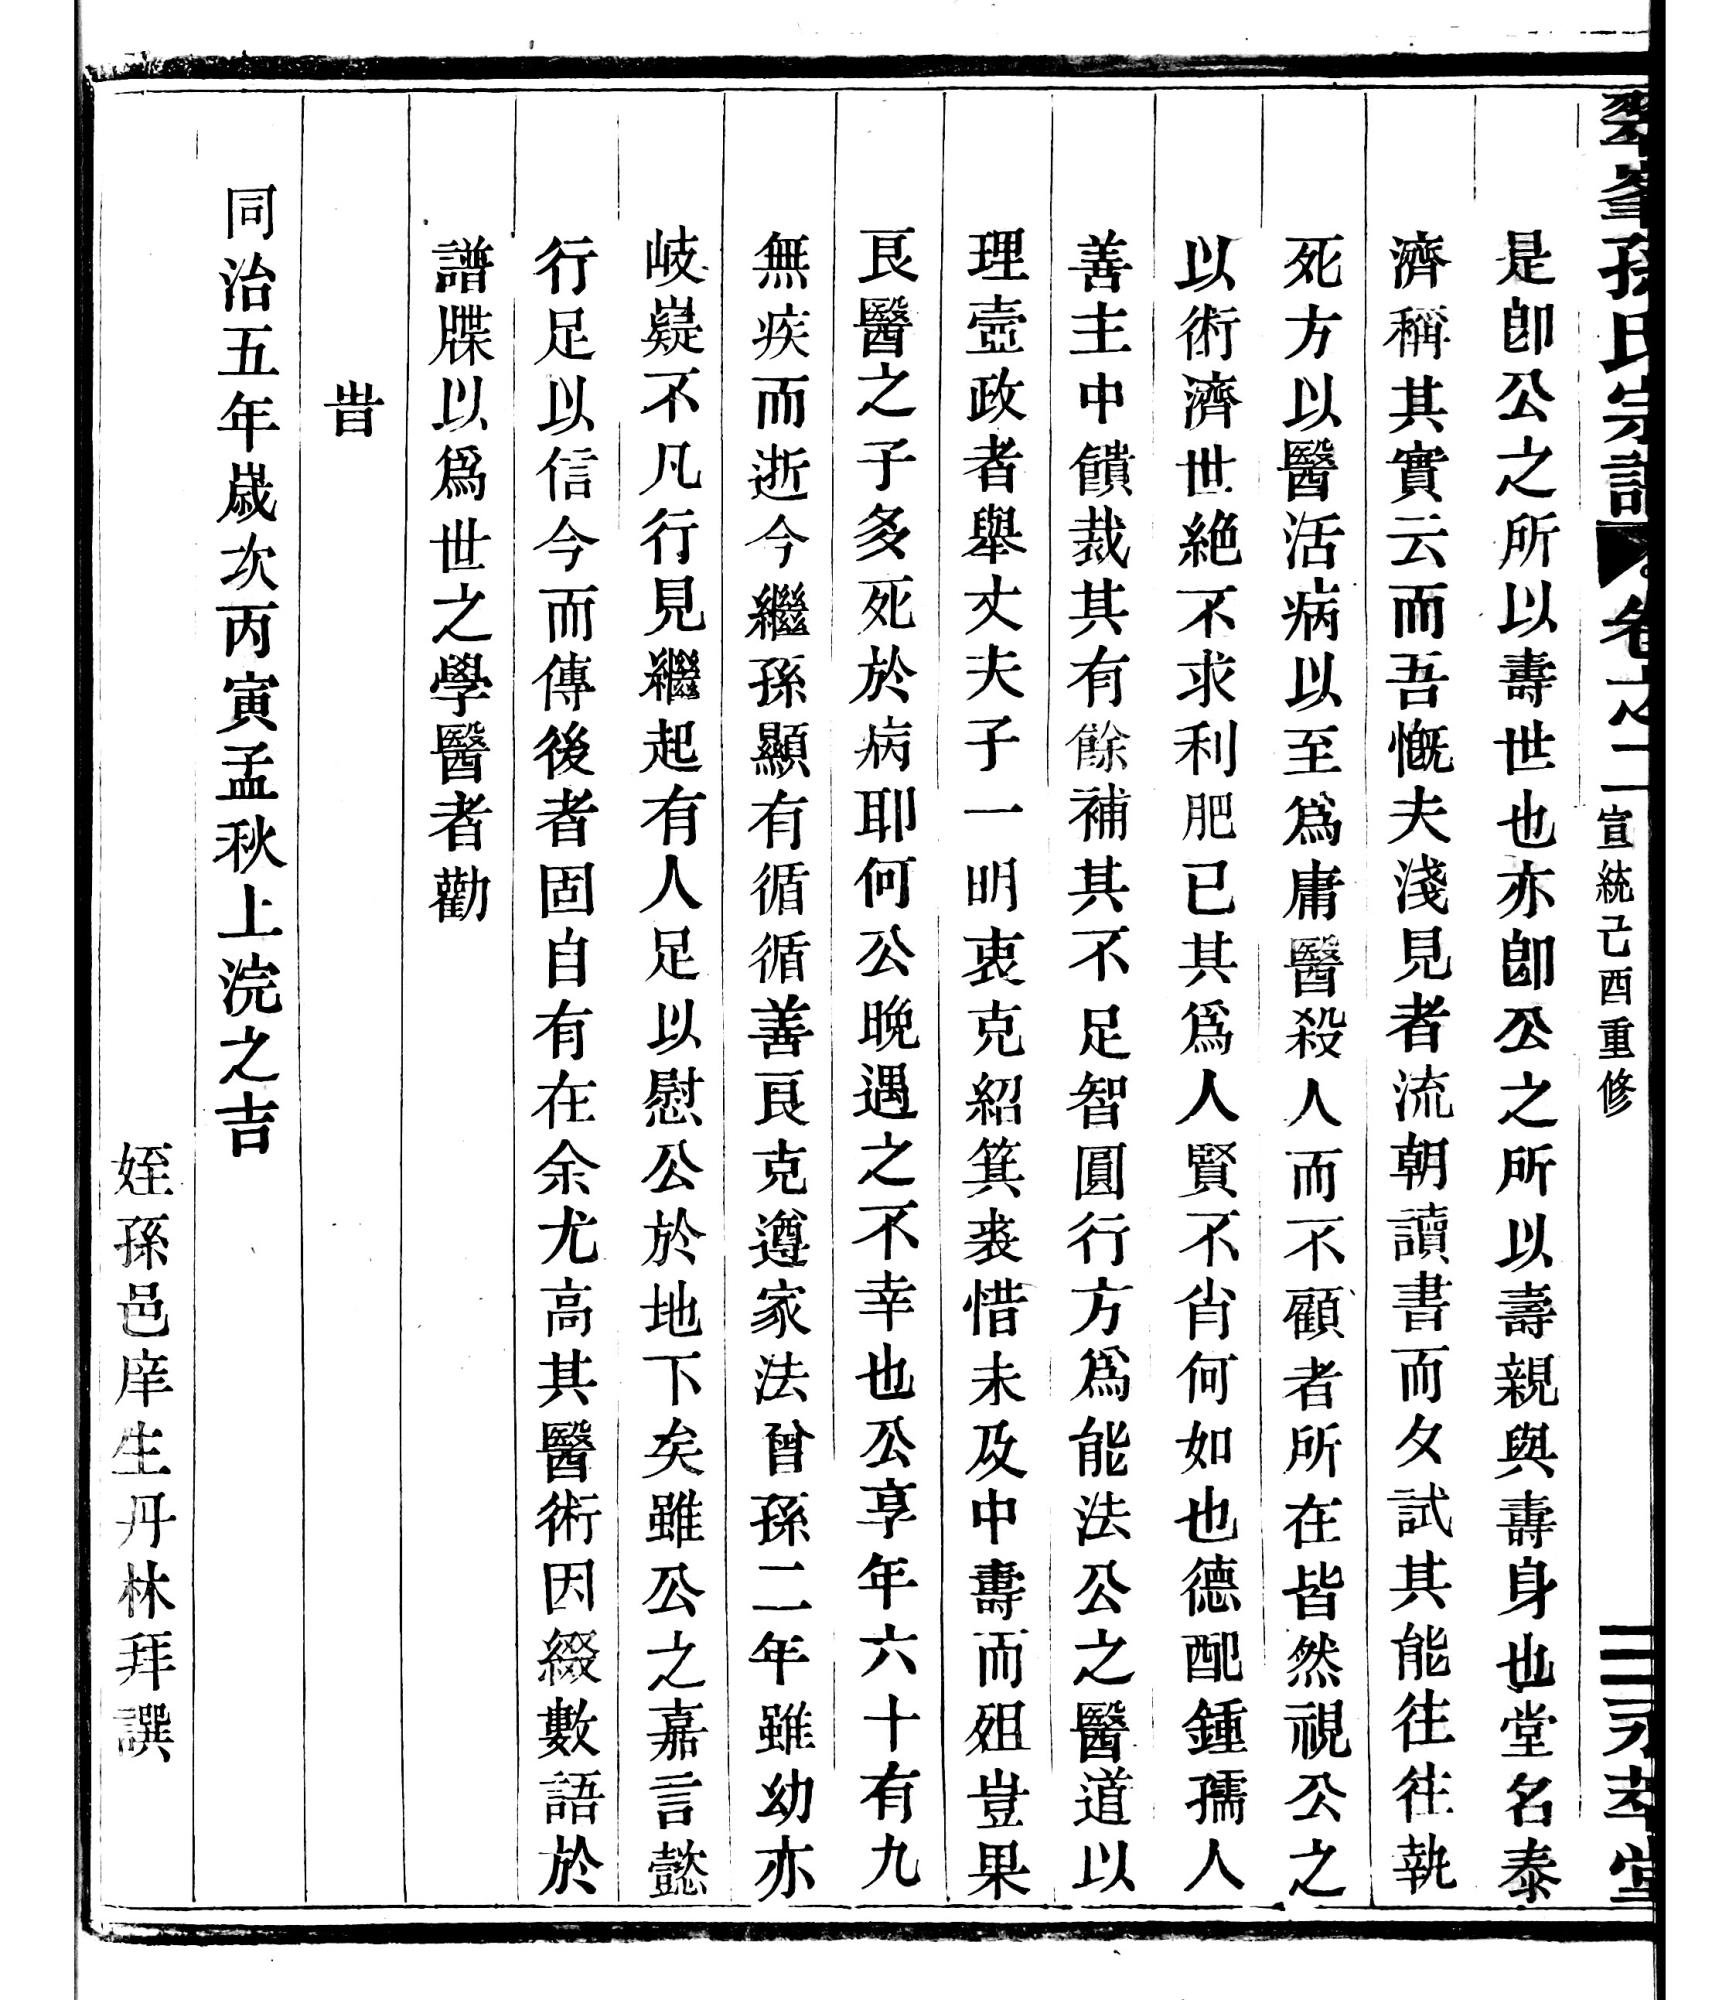 翠峯孫氏宗譜 卷之二 宣統己酉重修 三 永孝堂
是卽公之所以壽世也亦卽公之所以壽親與壽身也堂名泰
濟稱其實云而吾慨夫淺見者流朝讀書而夕試其能往往執
死方以醫活病以至爲庸醫殺人而不顧者所在皆然視公之
以術濟世絶不求利肥已其爲人賢不肖何如也德配鍾孺人
善主中饋裁其有餘補其不足智圓行方爲能法公之醫道以
理壼政者舉丈夫子一明衷克紹箕裘惜未及中壽而殂豈果
良醫之子多死於病耶何公晚遇之不幸也公享年六十有九
無疾而逝今繼孫顯有循循善良克遵家法曾孫二年雖幼亦
岐嶷不凡行見繼起有人足以慰公於地下矣雖公之嘉言懿
行足以信今而傳後者固自有在余尤高其醫術因綴數語於
譜牒以爲世之學醫者勸
旹
同治五年歲次丙寅孟秋上浣之吉
姪孫邑庠生丹林拜譔